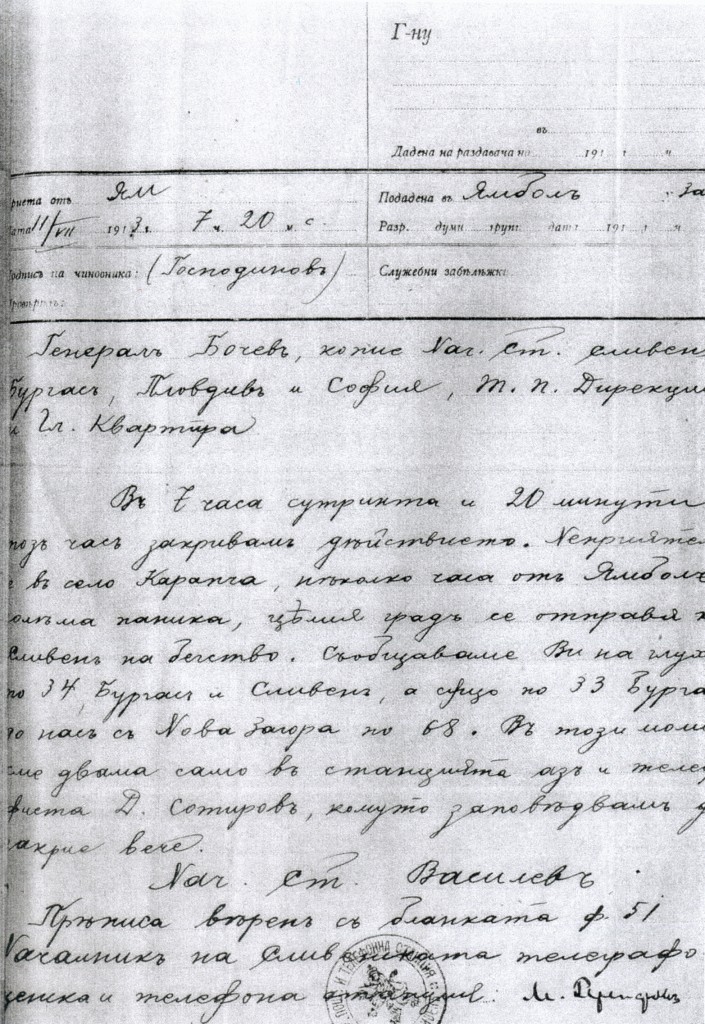 Г-ну
въ
Дадена на раздавача на 191 г. ч.
риета отъ Ям Подадена въ Ямболъ за
ата 11/VII 1913 г. 7 ч. 20 м. с. Разр. думи груп. дата 191 г. ч.
одпись на чиновника: (Господиновъ) Служебни забѣлѣжки
Генералъ Бочевъ, копие Нач. ст. Сливен
Бургасъ, Пловдивъ и София, Т. п. Дирекци
и Гл. Квартира
Въ 7 часа сутринта и 20 минути
този часъ закривамъ дѣйствието. Неприятел
е въ село Карапча, нѣколко часа отъ Ямболъ
олѣма паника, цѣлия градъ се отправя к
Сливенъ на бегство. Съобщаваме Ви на глух
по 34, Бургасъ и Сливенъ, а също по 33 Бурга
насъ съ Нова Загора по 68. Въ този моме
сме двама само въ станцията азъ и телег
фиста Д. Сотировъ, комуто заповѣдвамъ д
акрие вече.
Нач. Ст. Василевъ
Прѣписа вѣренъ съ бланката ф. 51
Началникъ на Сливенската телеграфо
и телефона станция: М.